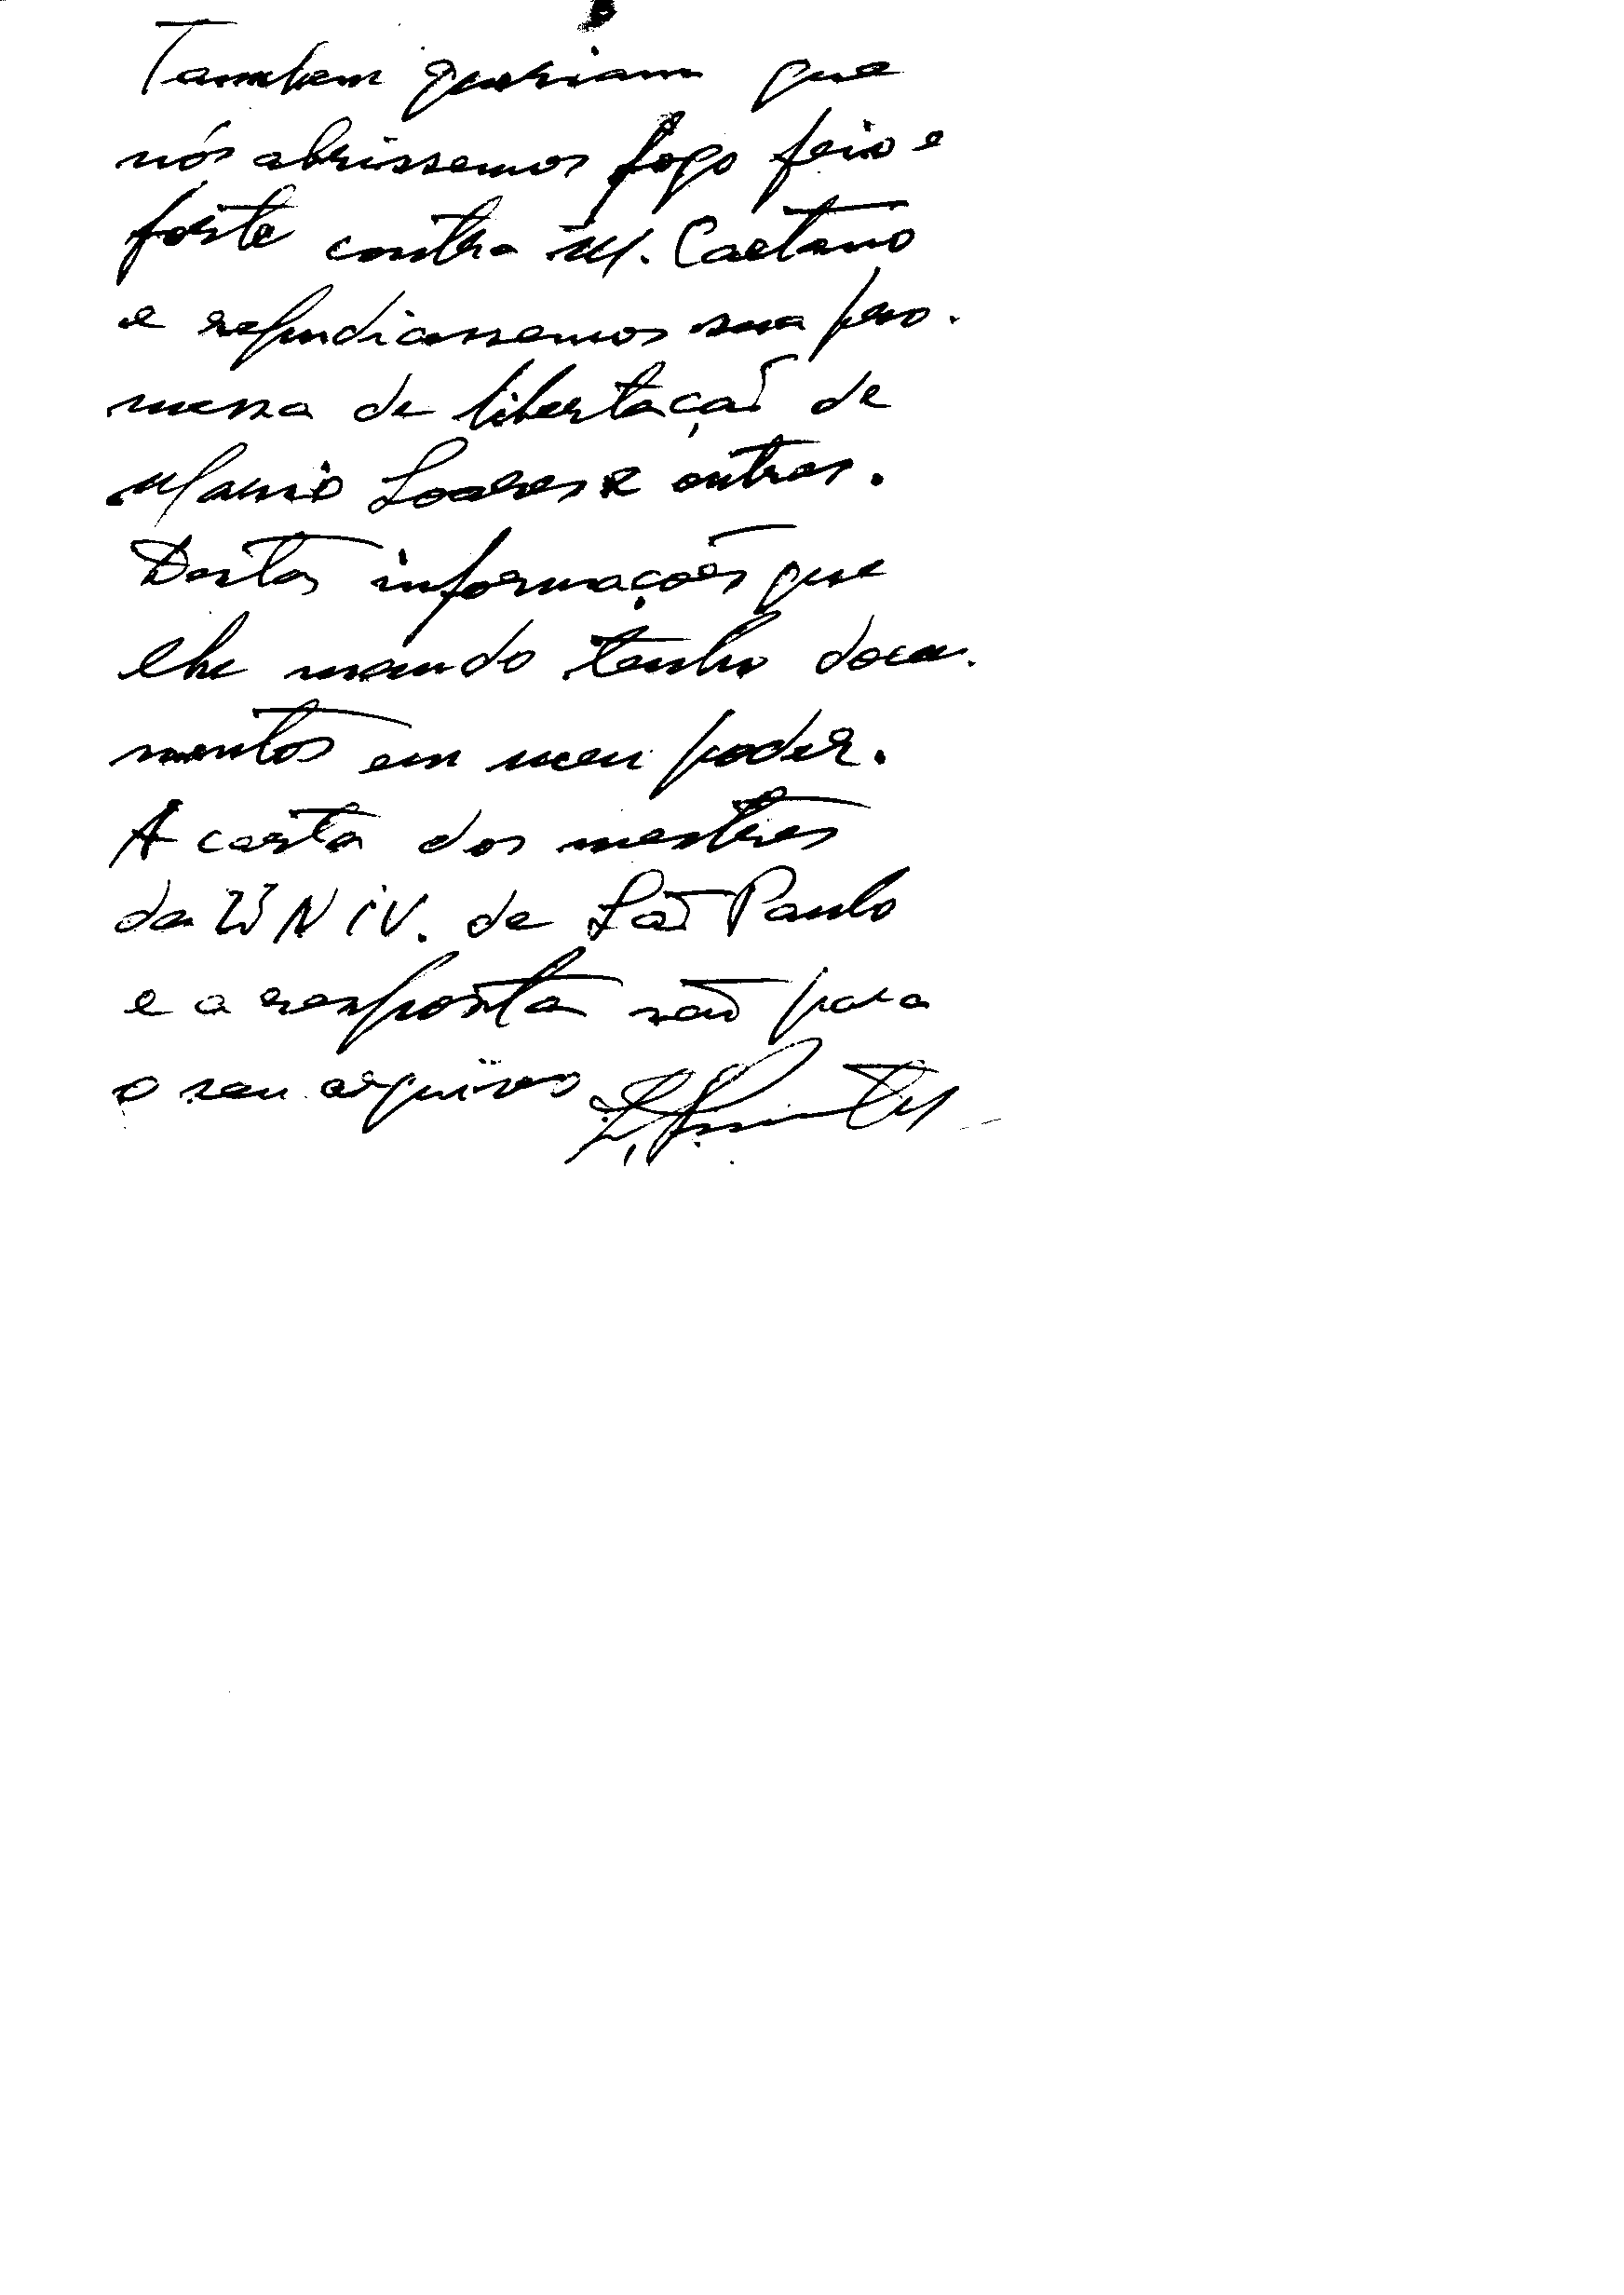 Tambem queriam que
nós abrissemos fogo feio e
forte contra M. Caetano
e repudiassemos sua pro-
messa de libertação de
Mario Soares e outros.
Destas informações que
lhe mando tenho docu-
mentos em meu poder.
A carta dos mestres
da UNIV. de São Paulo
e a resposta são para
o seu arquivo